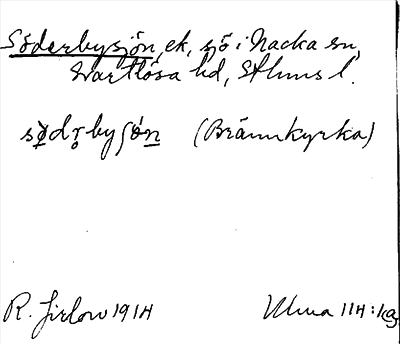 Söderbysjön, ek, sjö i Nacka sn,
Svartlösa hd, Sthlms l.
(Brännkyrka)
R. Jirlow 1914
Ulma 114: